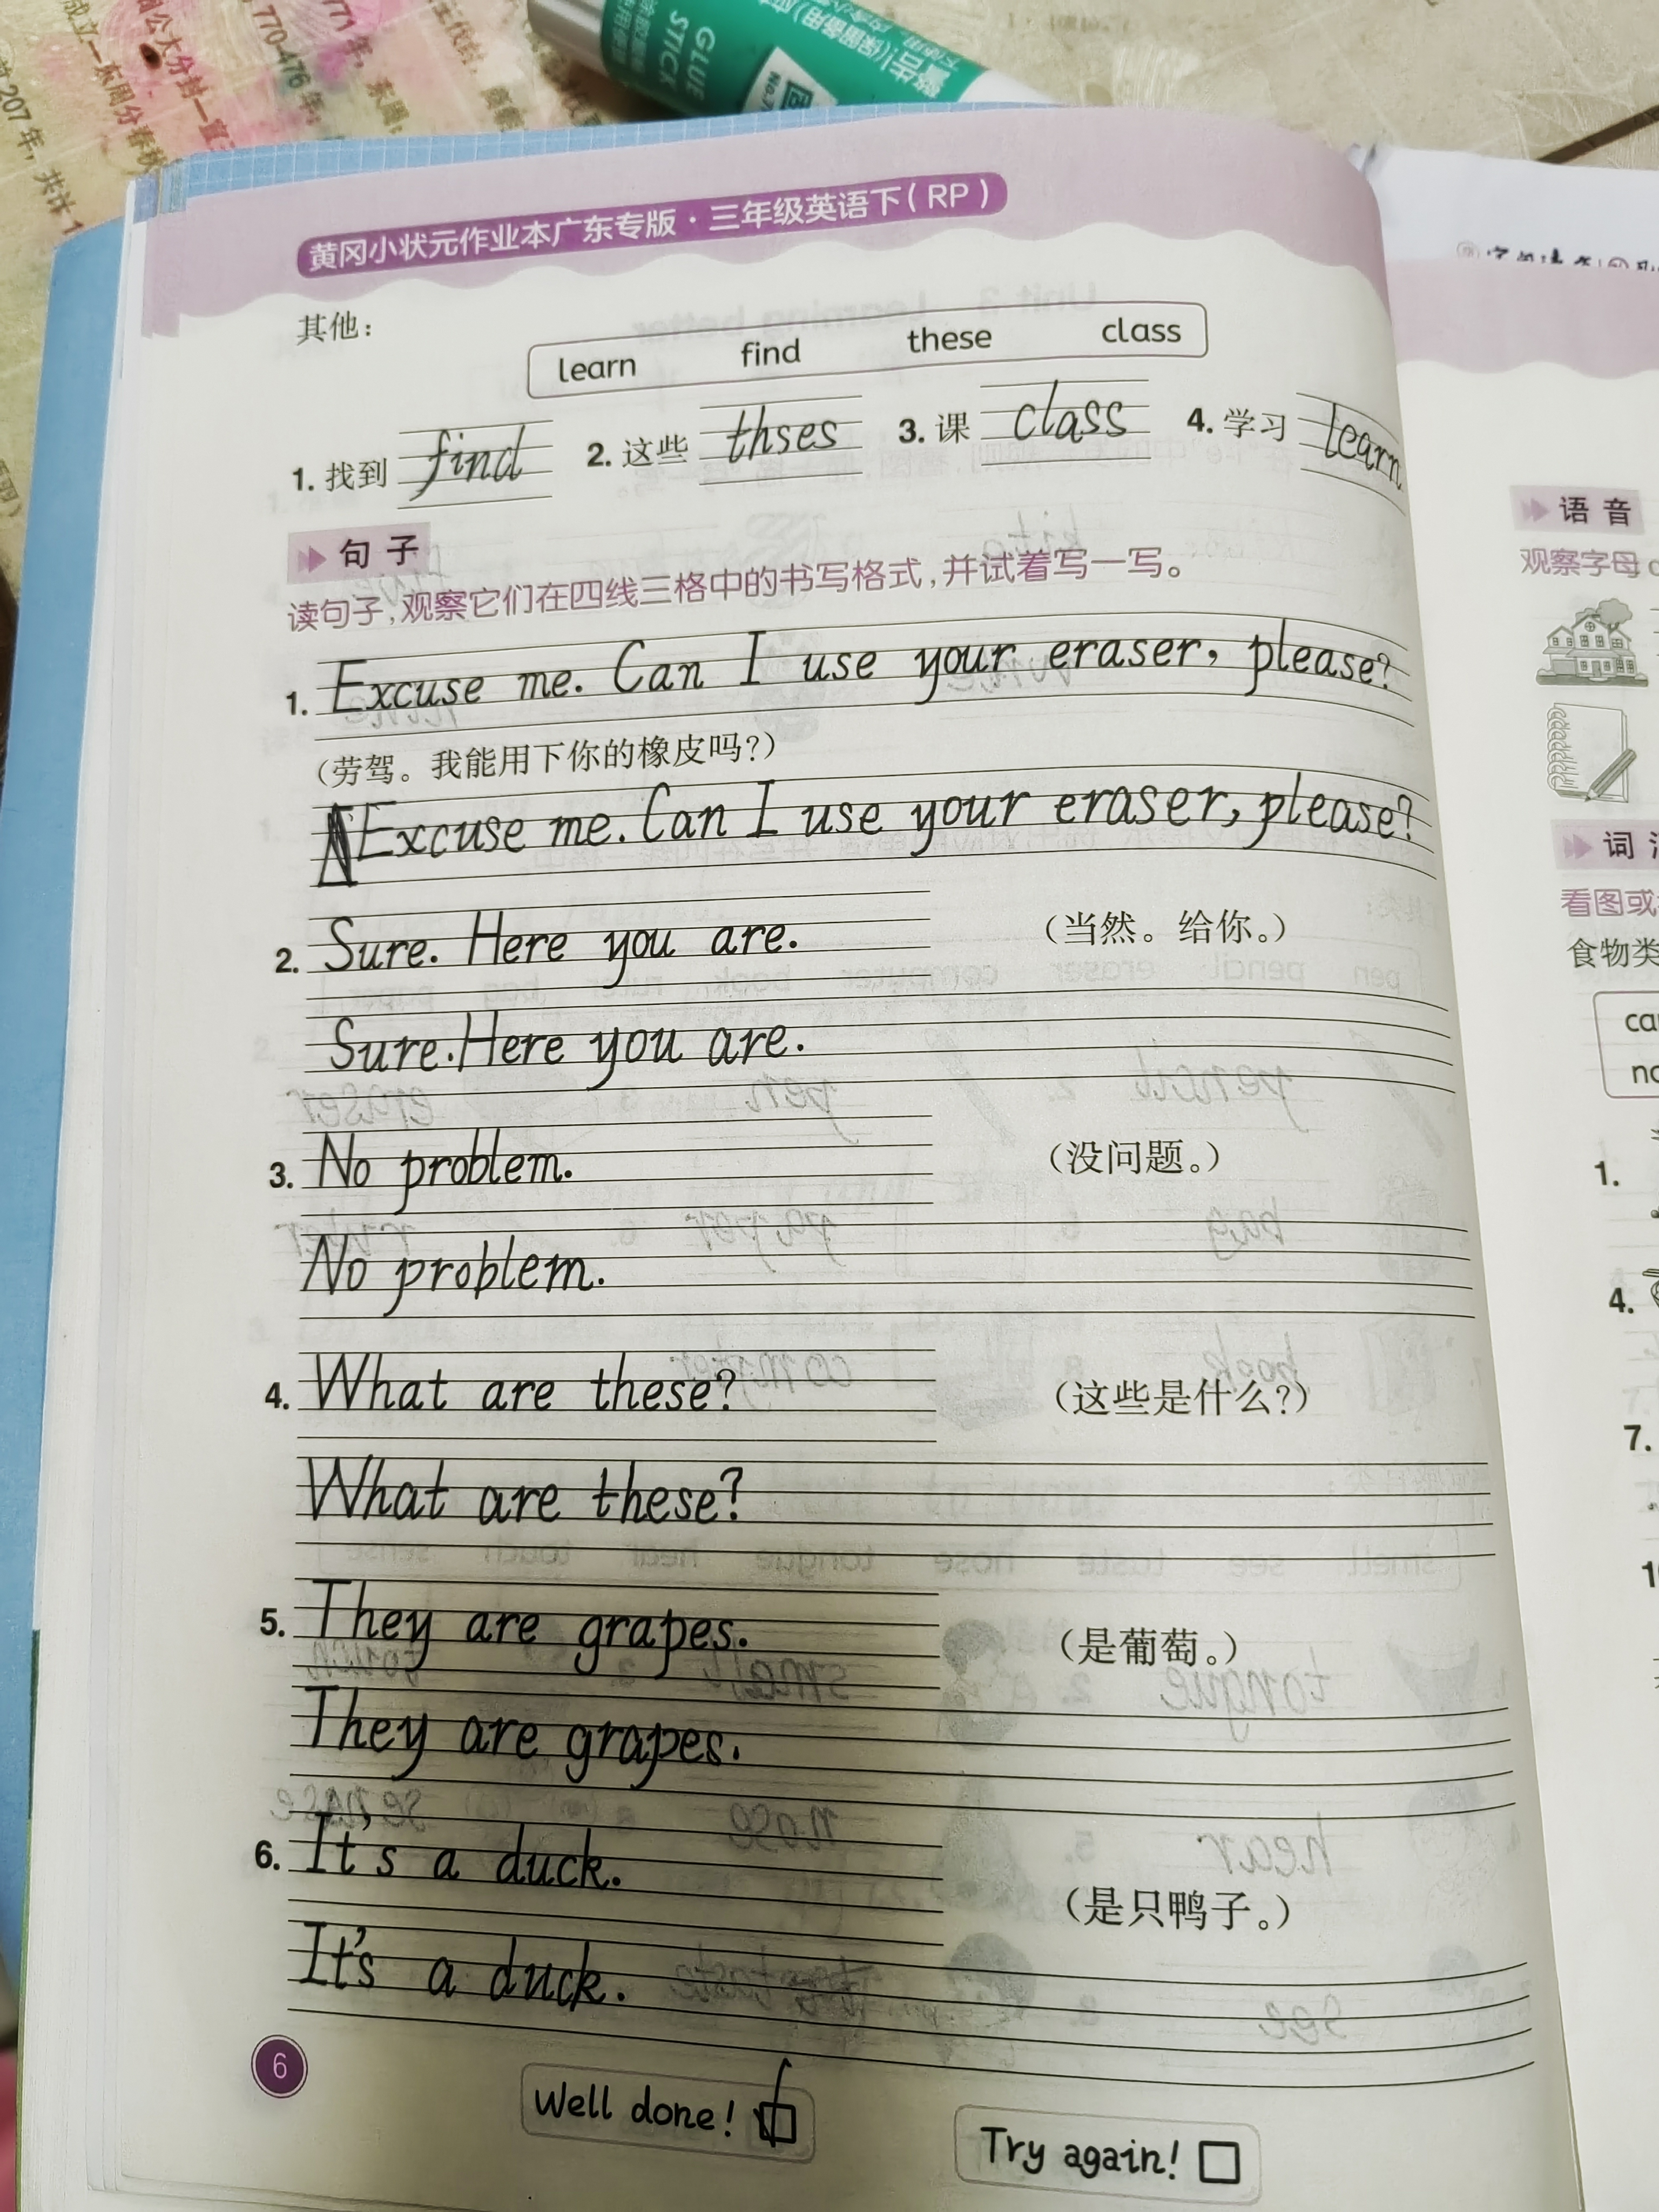 GLUE
STICK
黄冈小状元作业本广东专版·三年级英语下(RP)
其他:
learn find these class
1. 找到 find 2. 这些 thses 3. 课 class 4. 学习 learn
句子
读句子,观察它们在四线三格中的书写格式,并试着写一写。
1. Excuse me. Can I use your eraser, please?
(劳驾。我能用下你的橡皮吗?)
Excuse me. Can I use your eraser, please?
2. Sure. Here you are. (当然。给你。)
Sure. Here you are.
3. No problem. (没问题。)
No problem.
4. What are these? (这些是什么?)
What are these?
5. They are grapes. (是葡萄。)
They are grapes.
6. It's a duck. (是只鸭子。)
It's a duck.
6
Well done!
Try again!
语音
观察字母
词
看图或
食物类
1.
4.
7.